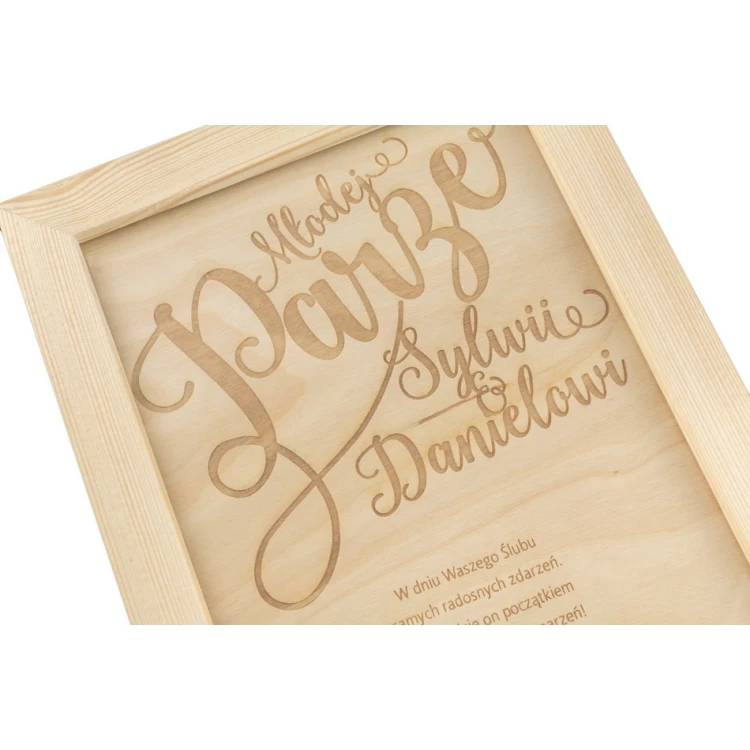 Młodej
Parze
Sylwii
&
Danielowi
W dniu Waszego Ślubu
samych radosnych zdarzeń.
on początkiem